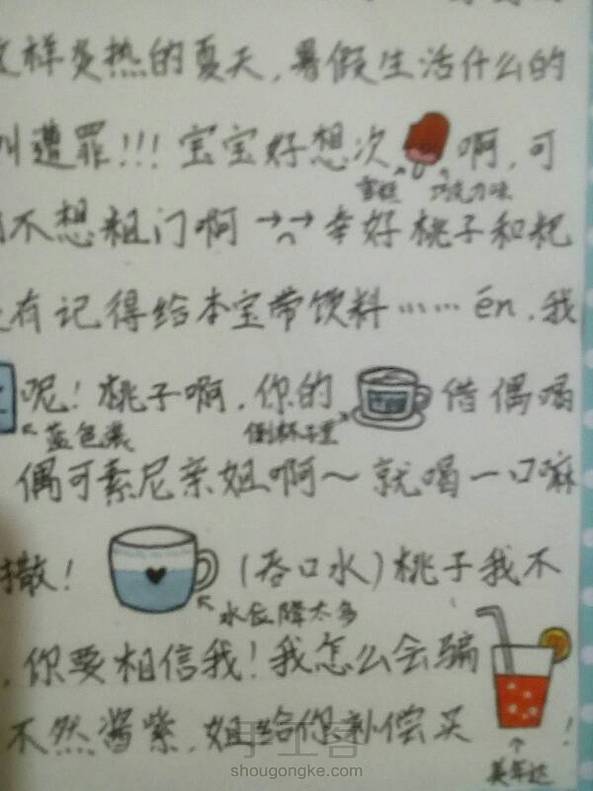 这样炎热的夏天，暑假生活什么的
叫遭罪!!! 宝宝好想次 啊，可
雪糕 巧克力味
不想粗门啊 →→ 幸好桃子和粑
有记得给本宝带饮料…… én．我
呢！桃子啊，你的 借偶喝
蓝色 倒杯子里
偶可素尼亲姐啊～ 就喝一口嘛
撒！ （吞口水）桃子我不
水位降太多
，你要相信我！我怎么会骗
不然酱紫，姐给你补偿买 ！
美年达
手工客
shougongke.com